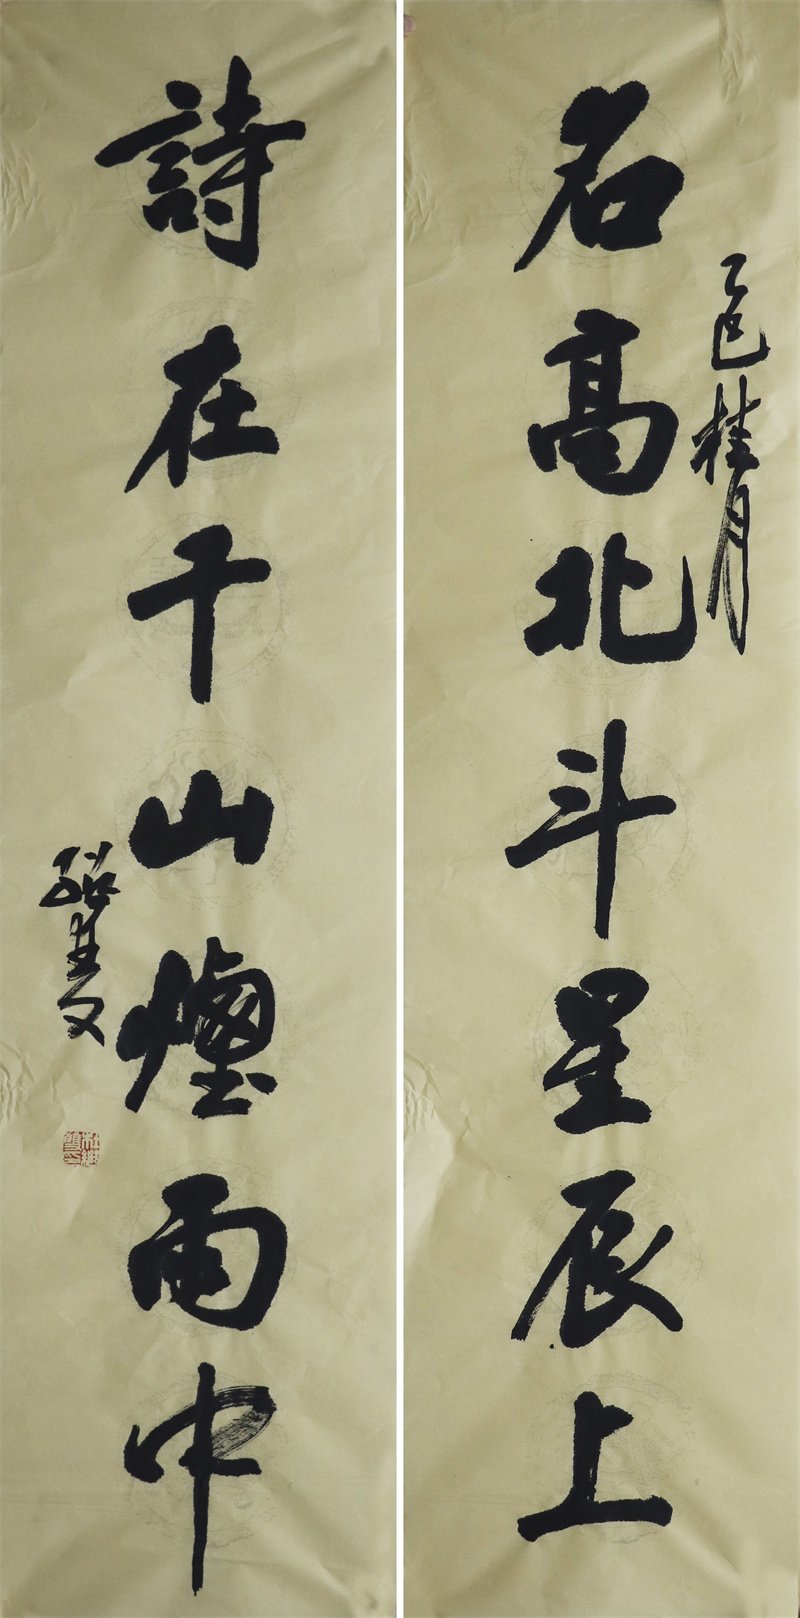 名高北斗星辰上
乙巳桂月
詩在千山煙雨中